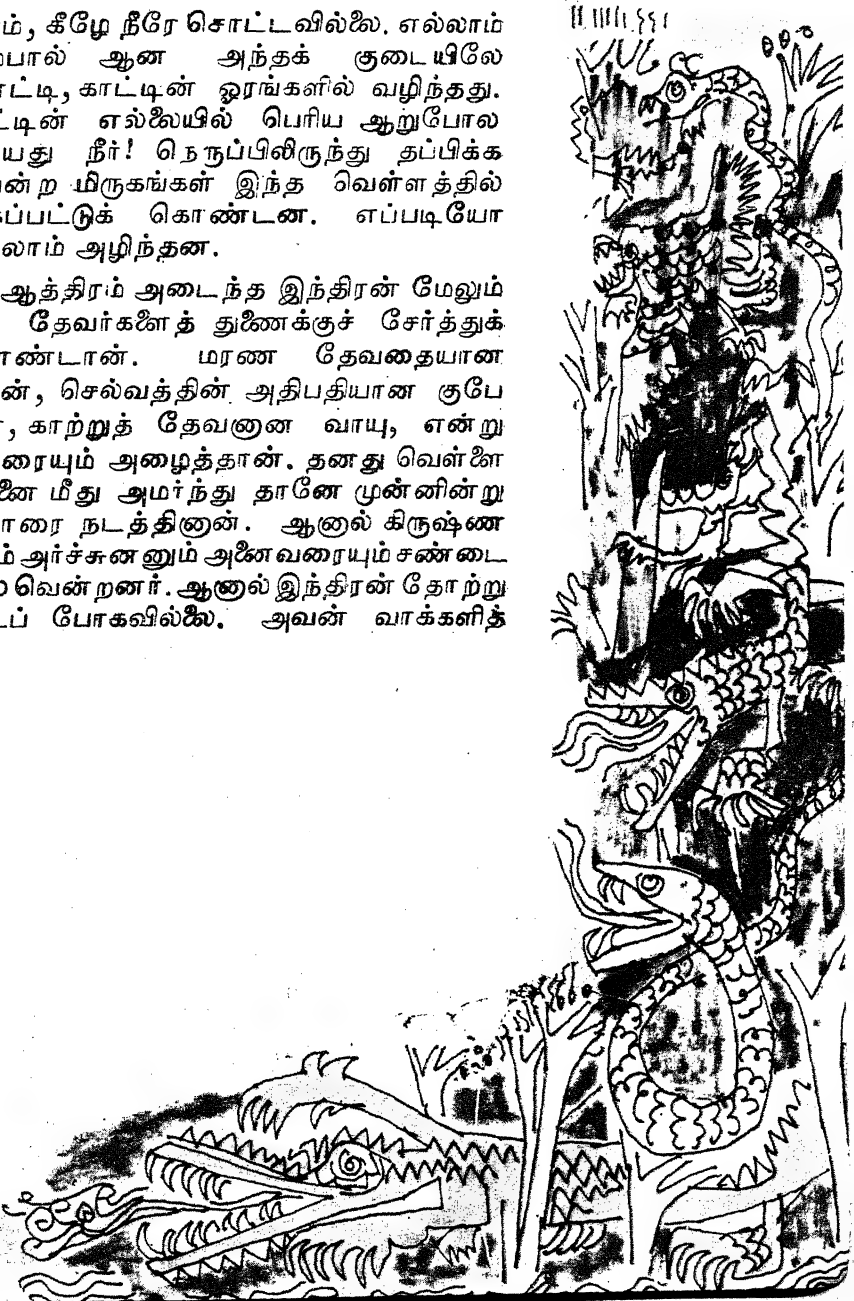 ம், கீழே நீரே சொட்டவில்லை. எல்லாம்
பால் ஆன அந்தக் குடையிலே
ட்டி, காட்டின் ஓரங்களில் வழிந்தது.
ட்டின் எல்லையில் பெரிய ஆறுபோல
யது நீர்! நெருப்பிலிருந்து தப்பிக்க
ன்ற மிருகங்கள் இந்த வெள்ளத்தில்
கப்பட்டுக் கொண்டன. எப்படியோ
லாம் அழிந்தன.
ஆத்திரம் அடைந்த இந்திரன் மேலும்
தேவர்களைத் துணைக்குச் சேர்த்துக்
ாண்டான். மரண தேவதையான
ன், செல்வத்தின் அதிபதியான குபே
, காற்றுத் தேவனான வாயு, என்று
ரையும் அழைத்தான். தனது வெள்ளை
னை மீது அமர்ந்து தானே முன்னின்று
ாரை நடத்தினான். ஆனால் கிருஷ்ண
ம் அர்ச்சுனனும் அனைவரையும் சண்டை
வென்றனர். ஆனால் இந்திரன் தோற்று
ப் போகவில்லை. அவன் வாக்களித்